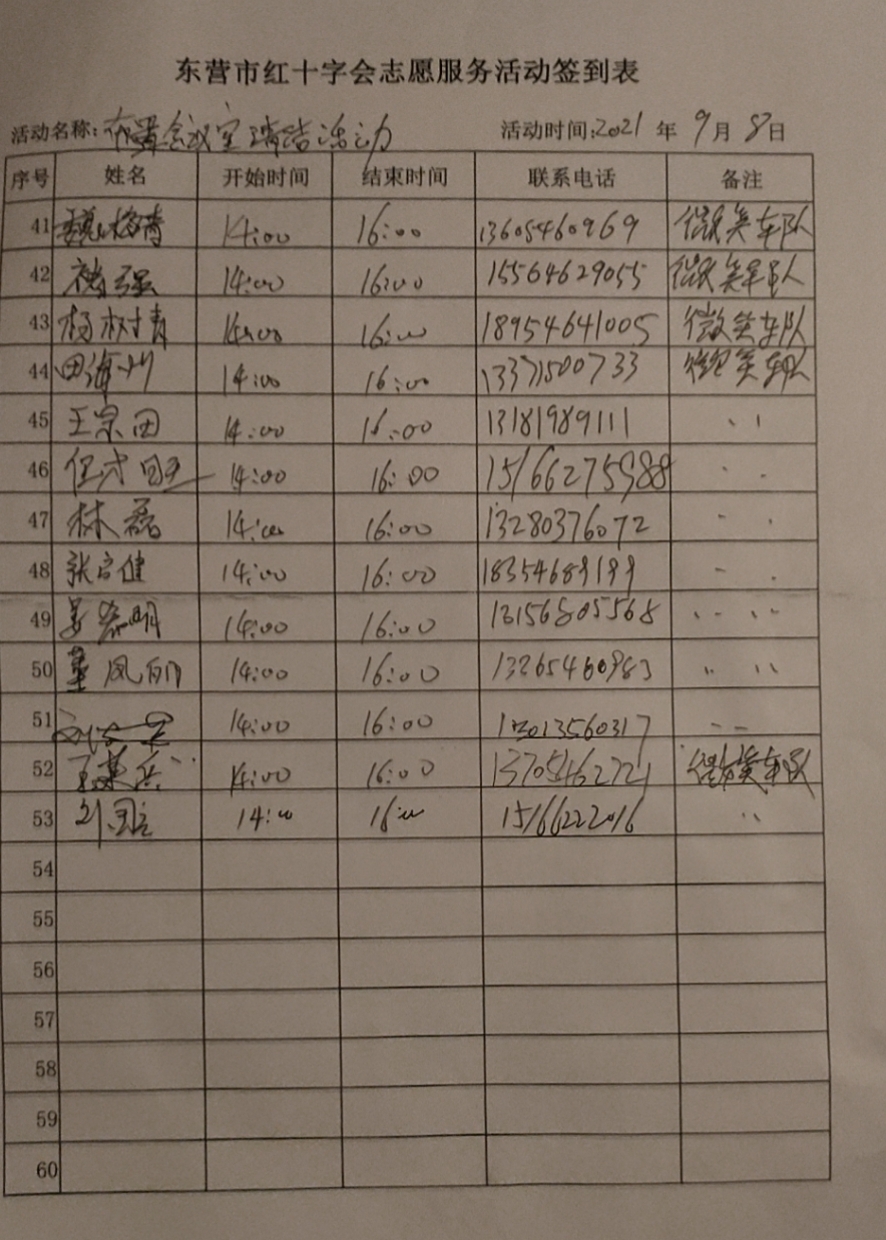 东营市红十字会志愿服务活动签到表
活动名称:布置会议室清洁活动 活动时间:2021 年 9月 8日
序号 姓名 开始时间 结束时间 联系电话 备注
41 魏梅青 14:00 16:00 13605460969 微笑车队
42 褚强 14:00 16:00 15564629055 微笑车队
43 杨树青 14:00 16:00 18954641005 微笑车队
44 田海川 14:00 16:00 13371500733 微笑车队
45 王宗田 14:00 16:00 13181989111 、 ı
46 14:00 16:00 15166275988
47 林磊 14:00 16:00 13280376072
48 张守健 14:00 16:00 18354689199
49 姜黎明 14:00 16:00 13156805568
50 董凤丽 14:00 16:00 13265460983 " "
51 14:00 16:00 13013560317
52 王英兵 14:00 16:00 13705462721 微笑车队
53 刘国 14:00 16:00 15166222016 "
54
55
56
57
58
59
60